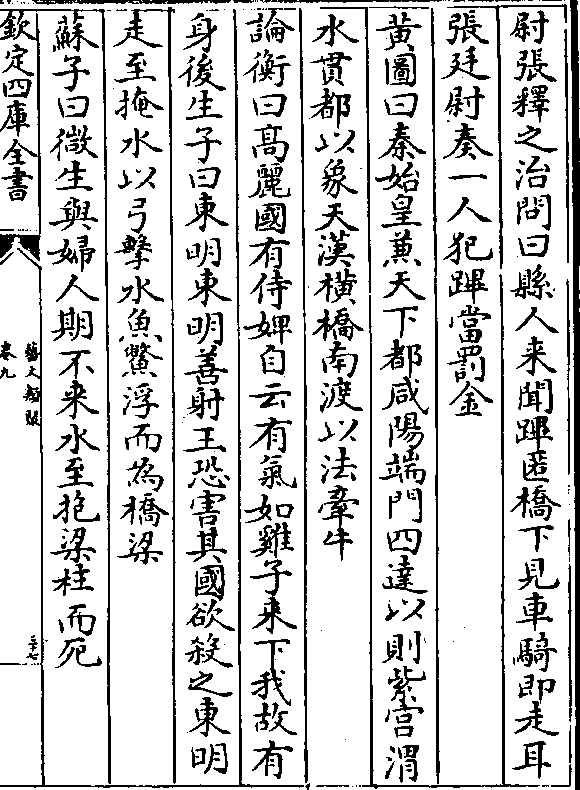 尉張釋之治問曰縣人来聞蹕匿橋下見車騎即走耳
張廷尉奏一人犯蹕當罰金
黄圖曰秦始皇兼天下都咸陽端門四達以則紫宫渭
水貫都以象天漢横橋南渡以法牽牛
論衡曰髙麗國有侍婢自云有氣如雞子来下我故有
身後生子曰東明東明善射王恐害其國欲殺之東明
走至掩水以弓擊水魚鱉浮而為橋梁
蘇子曰微生與婦人期不来水至抱梁柱而死
欽定四庫全書
藝文類聚
卷九
三十七